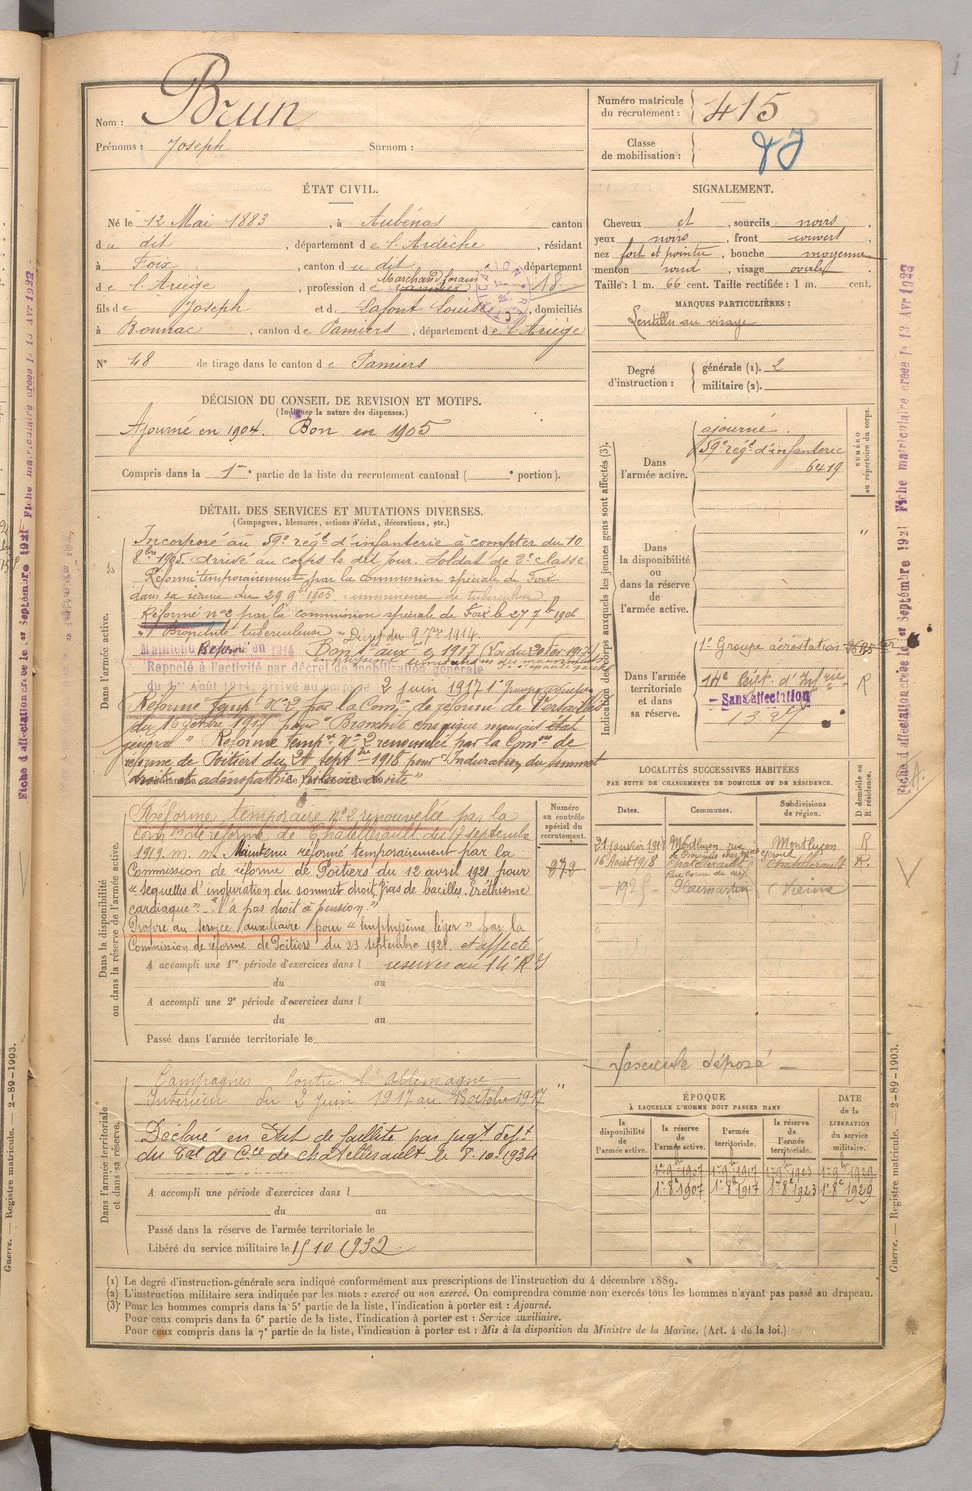 Nom : Brun
Prénoms : Joseph Surnom :
Numéro matricule du recrutement : 415
Classe de mobilisation :
ÉTAT CIVIL.
Né le 12 Mai 1883, à Aubénas canton
du dit, département de l'Ardèche, résidant
à Foix, canton du dit, département
de l'Ariège, profession de Marchand forain 18
fils de Joseph et de Lafont Louise, domiciliés
à Bonnac, canton de Pamiers, département de l'Ariège
N° 48 de tirage dans le canton de Pamiers
SIGNALEMENT.
Cheveux et, sourcils noirs
yeux noirs, front couvert
nez fort et pointu, bouche moyenne
menton rond, visage ovale
Taille : 1 m. 66 cent. Taille rectifiée : 1 m. cent.
MARQUES PARTICULIÈRES :
Lentilles au visage
Degré d'instruction : générale (1). 2
militaire (2).
DÉCISION DU CONSEIL DE REVISION ET MOTIFS.
(Indiquer la nature des dispenses.)
Ajourné en 1904. Bon en 1905
Compris dans la 1re partie de la liste du recrutement cantonal ( e portion).
DÉTAIL DES SERVICES ET MUTATIONS DIVERSES.
(Campagnes, blessures, actions d'éclat, décorations, etc.)
Dans l'armée active.
Incorporé au 59e régt d'infanterie à compter du 10
8bre 1905 arrivé au corps le dit jour. Soldat de 2e classe
Réformé temporairement par la commission spéciale de Foix
dans sa séance du 29 9bre 1905 imminence de tuberculose
Réformé n°2 par la commission spéciale de Foix le 27 7bre 1906
"Bronchite tuberculeuse" Décret du 9 7bre 1914.
Maintenu Réformé en 1914 Bon serv. aux. en 1917 (Loi du 20 fév. 1917)
Rappelé à l'activité par décret de mobilisation générale
du 1er Août 1914, arrivé au corps le 2 juin 1917 1er Groupe
Réformé Tempre N°2 par la Comon de réforme de Versailles
du 18 octobre 1917 pour "Bronchite chronique mauvais état
général" Réformé tempre N°2 renouvelée par la Cmon de
réforme de Poitiers du 24 sept 1918 pour "Induration du sommet
droit et adénopathie hilaire droite"
Dans la disponibilité ou dans la réserve de l'armée active.
Réforme temporaire n°2 renouvelée par la
comon de réforme de Châtellerault du 17 septembre
1919. m. m. Maintenu réformé temporairement par la
Commission de réforme de Poitiers du 12 avril 1921 pour
"sequelles d'induration du sommet droit, pas de bacilles. Eréthisme
cardiaque" - "N'a pas droit à pension"
Propre au service auxiliaire pour "Emphysème léger" par la
Commission de réforme de Poitiers du 23 septembre 1921. et affecté
A accompli une 1re période d'exercices dans l réserves au 14e R I
du au
A accompli une 2e période d'exercices dans l
du au
Passé dans l'armée territoriale le
Numéro au contrôle spécial du recrutement.
979
Dans l'armée territoriale et dans sa réserve.
Campagnes Contre l'Allemagne
Intérieur du 2 Juin 1917 au 18 octobre 1917
Déclaré en Etat de faillite par jugt dept
du Tal de Cce de Châtellerault le 8-10-1934
A accompli une période d'exercices dans l
du au
Passé dans la réserve de l'armée territoriale le
Libéré du service militaire le 15 10 1932
Indication des corps auxquels les jeunes gens sont affectés (3).
NUMÉRO au répertoire du corps.
Dans l'armée active. ajourné.
59e régt d'infanterie
6419
Dans la disponibilité ou dans la réserve de l'armée active.
Dans l'armée territoriale et dans sa réserve.
1er Groupe aérostation
14e Régt d'Infrie R
Sans affectation
LOCALITÉS SUCCESSIVES HABITÉES
PAR SUITE DE CHANGEMENTS DE DOMICILE OU DE RÉSIDENCE.
Dates. Communes. Subdivisions de région. D domicile ou R résidence.
21 janvier 1918 Montluçon Montluçon R
16 Août 1918 Chatellerault Chatellerault R
(Vienne)
fascicule déposé
ÉPOQUE
À LAQUELLE L'HOMME DOIT PASSER DANS
la disponibilité de l'armée active.
la réserve de l'armée active.
l'armée territoriale.
la réserve de l'armée territoriale.
DATE de la LIBÉRATION du service militaire.
1er 8e 1907 1er 8e 1917 1er 8e 1923 1er 8e 1929
(1) Le degré d'instruction générale sera indiqué conformément aux prescriptions de l'instruction du 4 décembre 1889.
(2) L'instruction militaire sera indiquée par les mots : exercé ou non exercé. On comprendra comme non exercés tous les hommes n'ayant pas passé au drapeau.
(3) Pour les hommes compris dans la 5e partie de la liste, l'indication à porter est : Ajourné.
Pour ceux compris dans la 6e partie de la liste, l'indication à porter est : Service auxiliaire.
Pour ceux compris dans la 7e partie de la liste, l'indication à porter est : Mis à la disposition du Ministre de la Marine. (Art. 4 de la loi.)
Guerre. — Registre matricule. — 2-89-1903.
Guerre. — Registre matricule. — 2-89-1903.